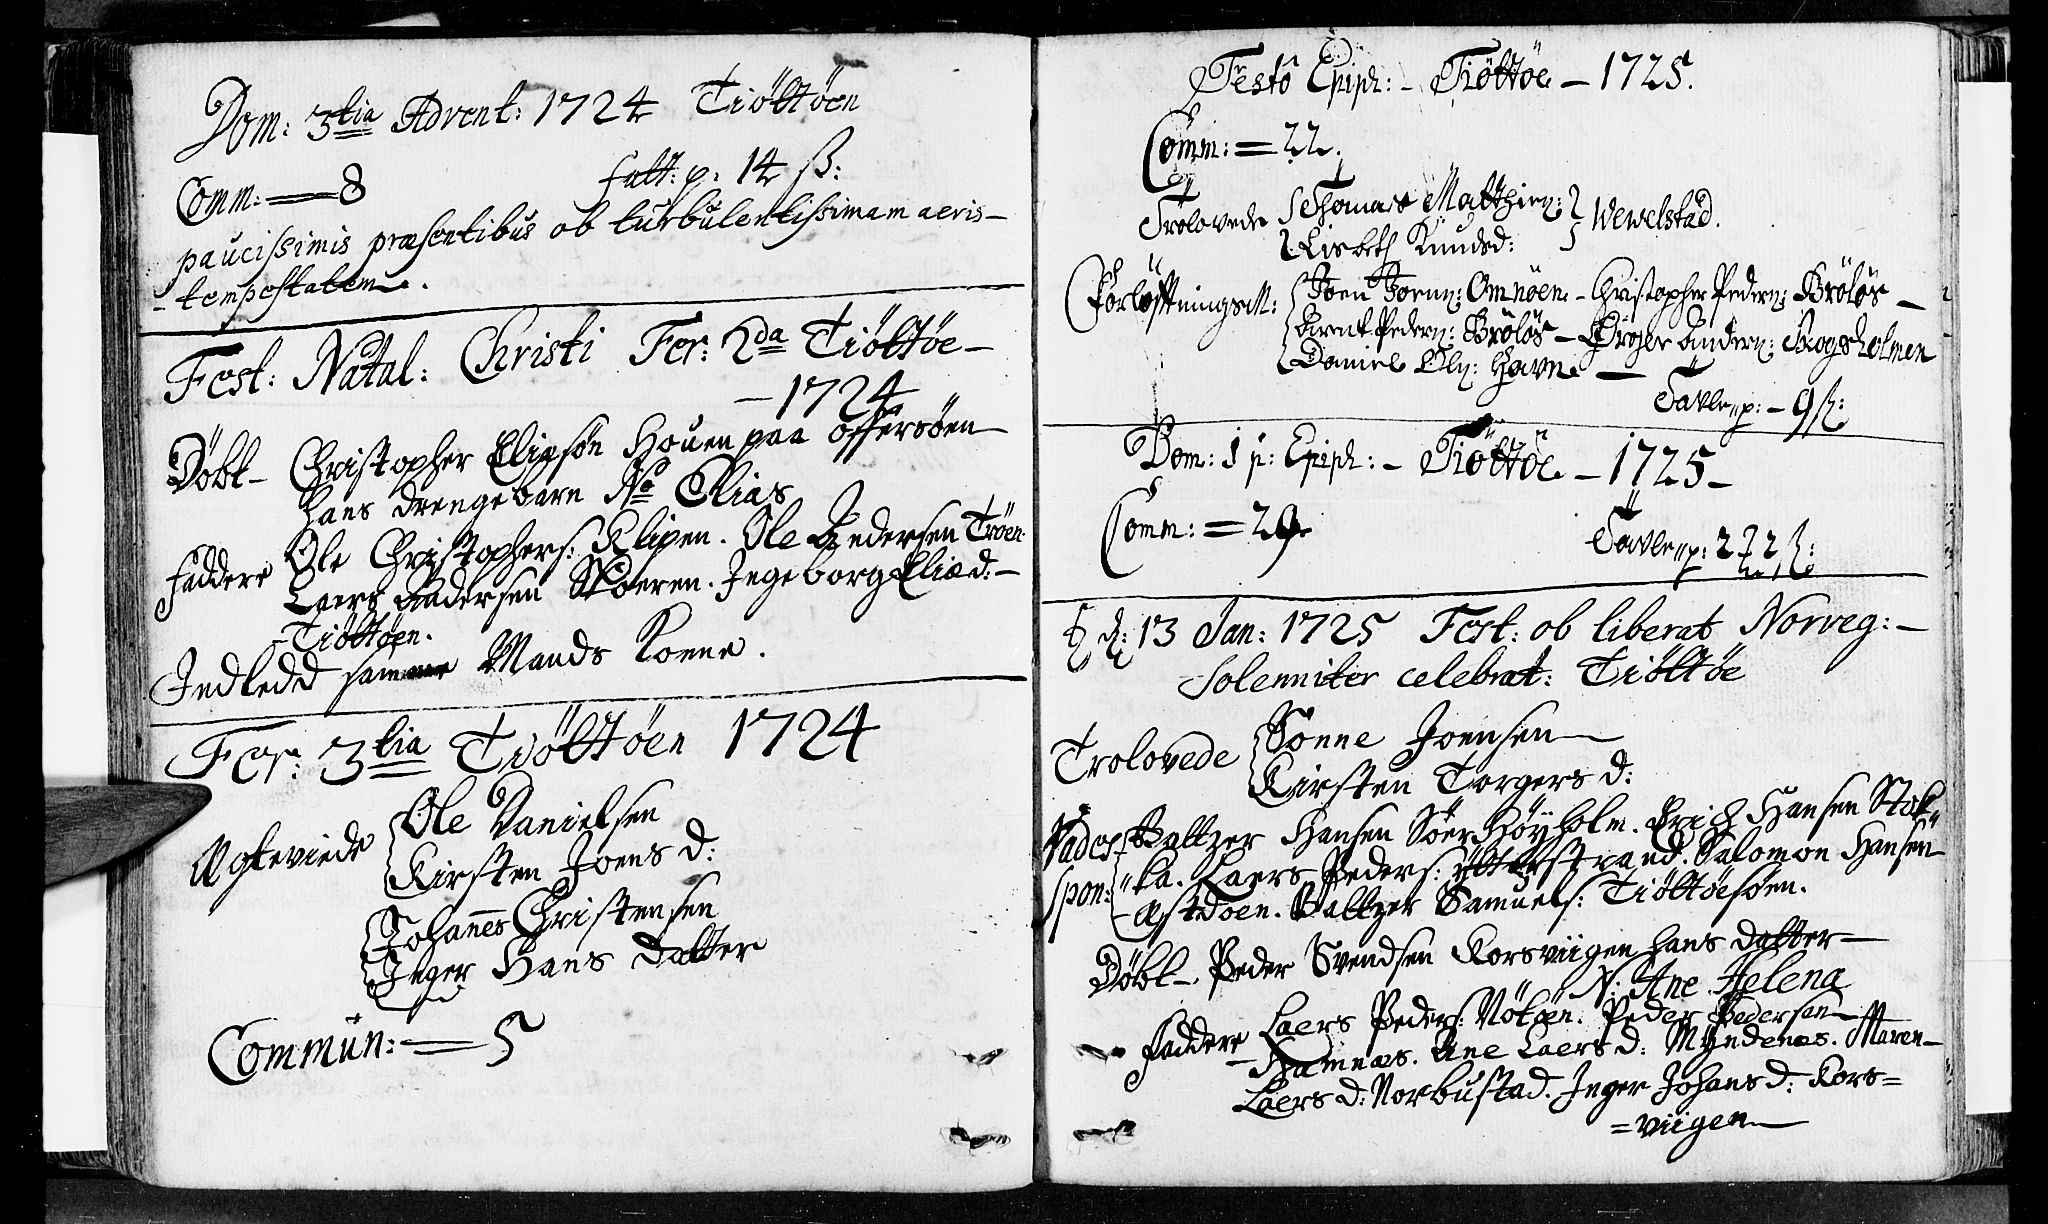 Dom: 3tia Advent: 1724 Tiöttöen
Comm: = 8 fatt: p: 14 ß:
paucissimis præsentibus ob turbulentissimam aeris-
- tempestatem.
Fest: Natal: Christi Fer: 2da Tiöttöe -
- 1724
Döbt - Christopher Eliasön Houen paa Offersöen
hans drengebarn No Elias
Faddere Ole Christophers: Klipen. Ole Andersen Tröen.
Laers Andersen Skoeren. Ingeborg Eliæd: -
- Tiöttöen.
Indledd samme Mands Konne.
Fer: 3tia Tiöttöen 1724
Egteviede Ole Danielsen
Kirsten Joens d:
Johannes Christensen
Inger Hans Datter
Commun: = 5
Festo Epiph: - Tiöttöe - 1725.
Comm: = 22.
Trolovede Thomas Matthien: Wewelstad.
Lisbeth Knudsd:
Forlöftningsm: Joen Joenn: Omnöen - Christopher Pedern: Brölös -
Arent Pedern: Brölös - Andern: Skogsholmen
Daniel Oln: Havn. -
Tavle p: - 9 ß:
Dom: 1 p: Epiph: - Tiöttöe - 1725 -
Comm: = 29. Tavle p: 2
d: 13 Jan: 1725 Fest: ob liberat Norveg: -
Solenniter celebrat: Tiöttöe
Trolovede Sönne Joensen
Kirsten Torgers d:
Vades Baltzer Hansen Söer Höyholm. Erich Hansen Stok-
spon: "ka. Laers Peders: ytterstrand. Salomon Hansen
- Baltzer Samuels: Tiöttöesöen.
Döbt -. Peder Svendsen Korsviigen hans datter -
N: Ane Helena
Faddere Laers Peders: Rötöen. Peder Pedersen
- Hamnæs. Ane Laers d: Myndenæs. Maren -
Laers d: Norbustad. Inger Johans d: Kors=
=viigen